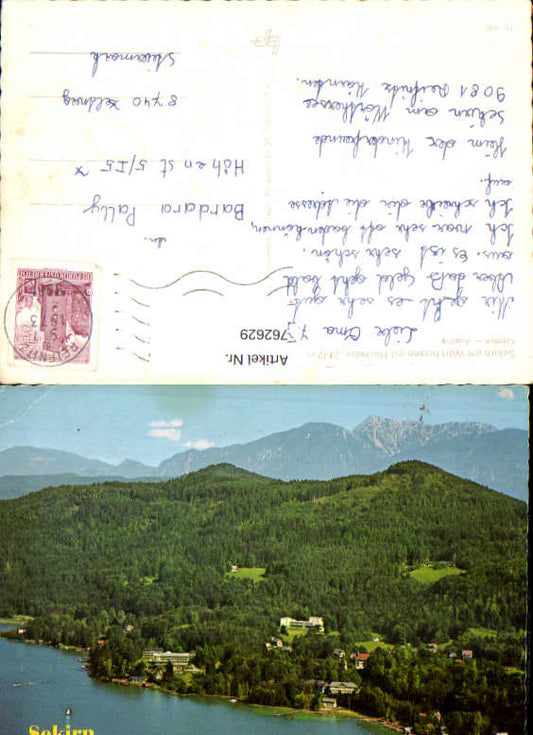 Sekirn am Wörthersee mit Hochobir, 2142 m
Kärnten — Austria
Artikel Nr.
762629
Liebe Oma!
Mir geht es sehr gut
Aber das Geld geht bald
aus. Es ist sehr schön.
Ich war sehr oft baden
Ich schreibe dir die Adresse
auf.
Heim der Kinderfreunde
Sekirn am Wörthersee
9081 Reifnitz Kärnten.
An.
Pally
Höhenst 5/I5
8740 Zeltweg
Steiermark
REPUBLIK ÖSTERREICH
REIFNITZ
Sekirn